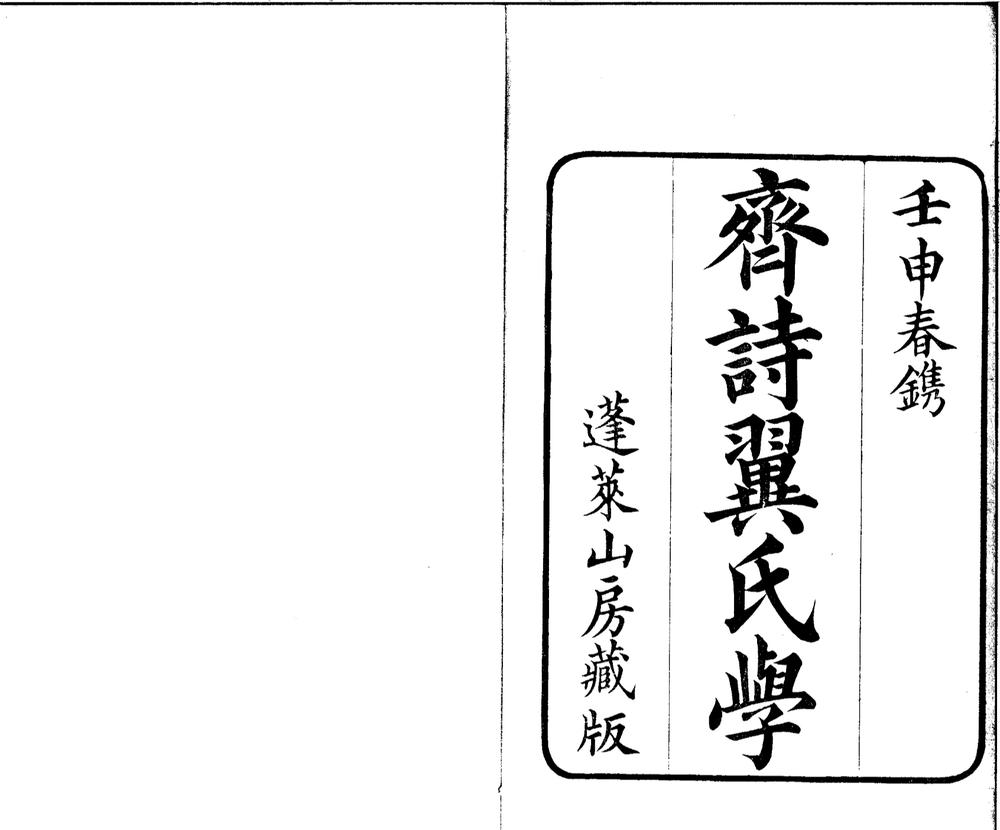 壬申春鐫
齊詩翼氏學
蓬萊山房藏版